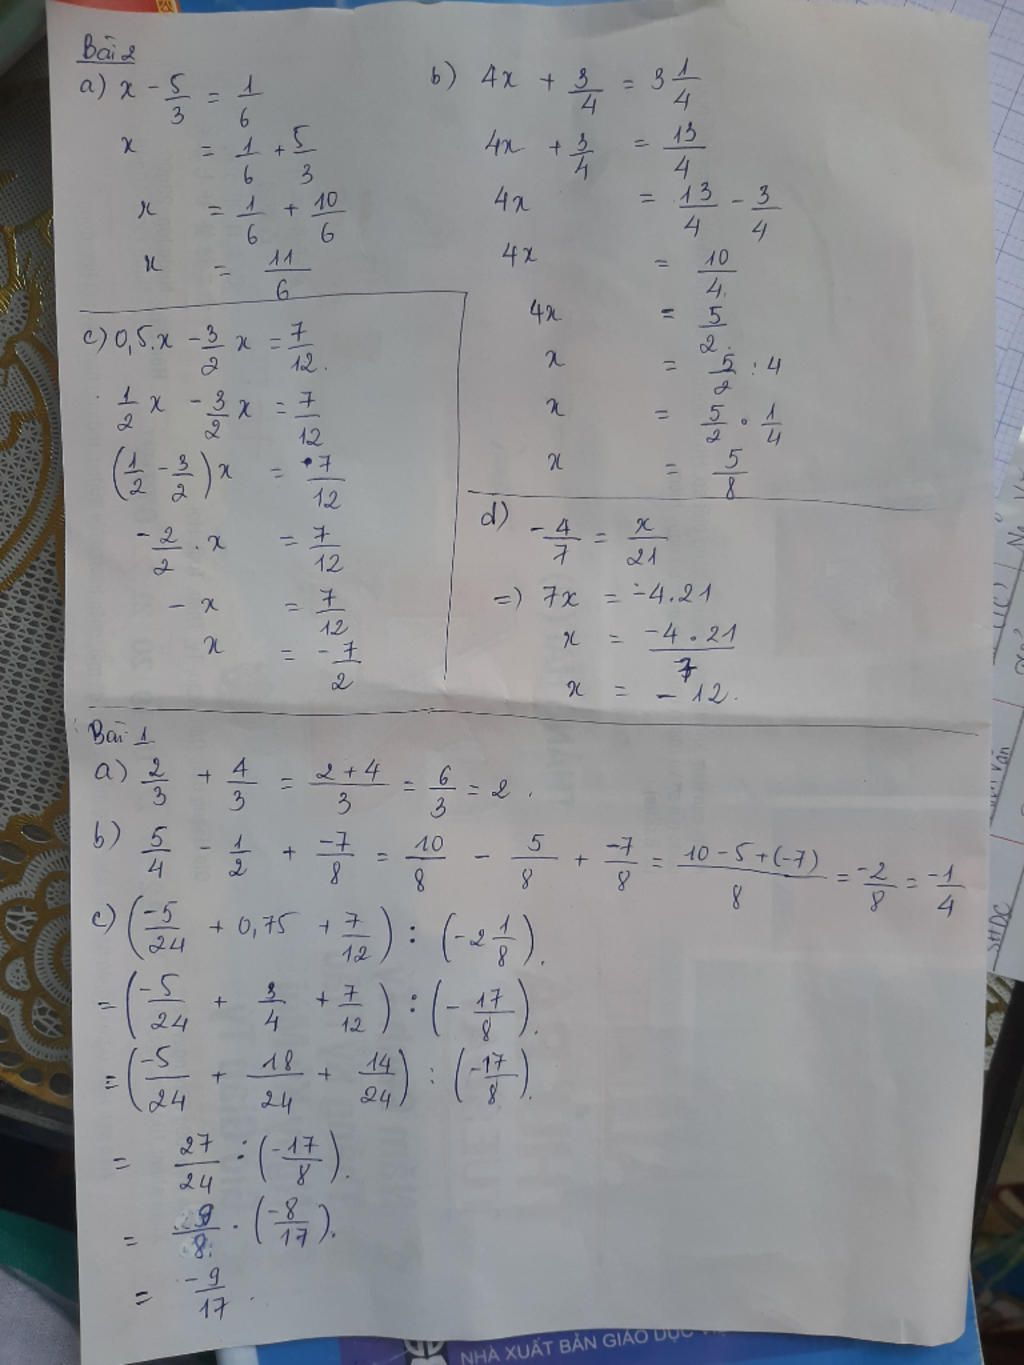 Bài 2
a) x - 5/3 = 1/6
x = 1/6 + 5/3
x = 1/6 + 10/6
x = 11/6
b) 4x + 3/4 = 3 1/4
4x + 3/4 = 13/4
4x = 13/4 - 3/4
4x = 10/4.
4x = 5/2.
x = 5/2 : 4
x = 5/2 . 1/4
x = 5/8
c) 0,5.x - 3/2 x = 7/12.
1/2 x - 3/2 x = 7/12
(1/2 - 3/2) x = 7/12
-2/2 . x = 7/12
- x = 7/12
x = -7/2
d) -4/7 = x/21
=) 7x = -4.21
x = -4.21/7
x = -12.
Bài 1
a) 2/3 + 4/3 = 2+4/3 = 6/3 = 2.
b) 5/4 - 1/2 + -7/8 = 10/8 - 5/8 + -7/8 = 10-5+(-7)/8 = -2/8 = -1/4
c) (-5/24 + 0,75 + 7/12) : (-2 1/8).
= (-5/24 + 3/4 + 7/12) : (-17/8).
= (-5/24 + 18/24 + 14/24) : (-17/8).
= 27/24 : (-17/8).
= 9/8 . (-8/17).
= -9/17.
SHDC
NHÀ XUẤT BẢN GIÁO DỤC